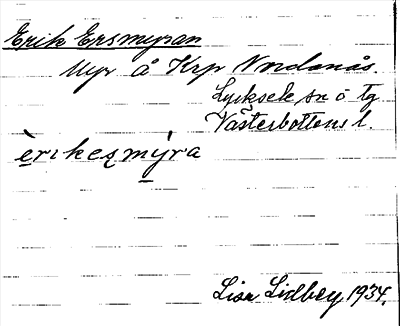 Erik Ersmyran
Myr å Krp Nordanås.
Lycksele sn o tg
Västerbottens l.
èrikesmýra
Lisa Lidberg 1934.